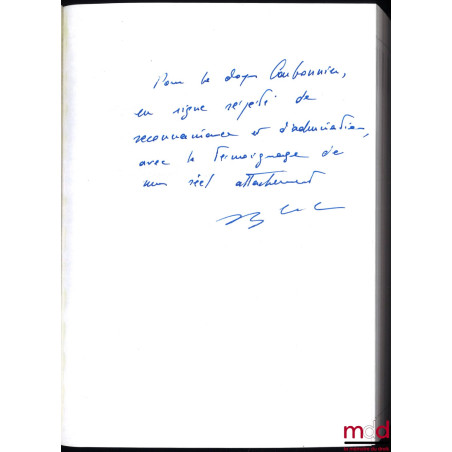 Pour le doyen Carbonnier,
en signe répété de
reconnaissance et d'admiration,
avec le témoignage de
mon réel attachement
mdd